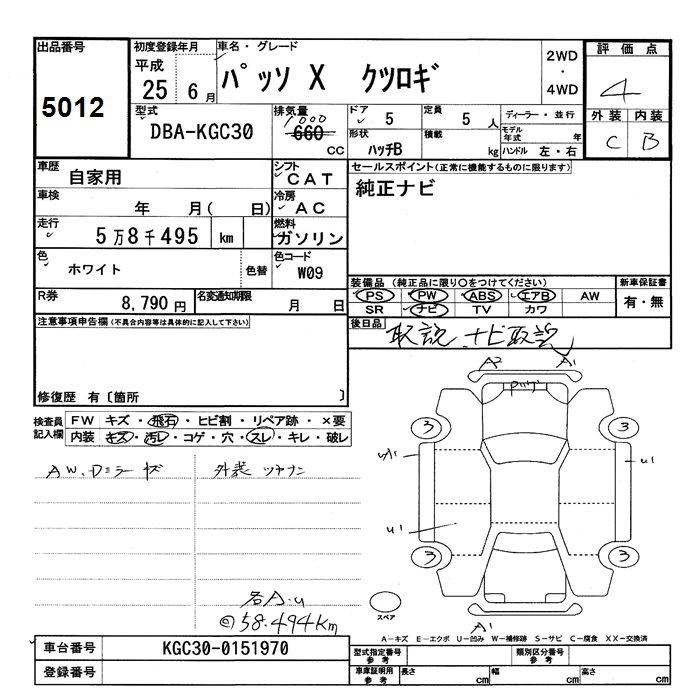 出品番号
5012
初度登録年月
平成
25 6月
車名・グレード
パッソ X クツロギ
2WD
・
4WD
評価点
4
外装 内装
C B
型式
DBA-KGC30
排気量
1000
660
CC
ドア
5
定員
5 人
形状
ハッチB
積載
kg
ディーラー・並行
モデル年式
年
ハンドル 左・右
車歴
自家用
シフト
CAT
車検
年 月( 日)
冷房
AC
走行
5万8千495 km
燃料
ガソリン
色
ホワイト
色替
色コード
W09
R券
8,790円
名変通知期限
月 日
セールスポイント(正常に機能するものに限ります)
純正ナビ
装備品 (純正品に限り○をつけてください)
新車保証書
PS PW ABS エアB AW
SR ナビ TV カワ
有・無
後日品
取説 ナビ取説
注意事項申告欄(不具合内容等は具体的に記入して下さい)
修復歴 有〔箇所 〕
検査員
記入欄
FW キズ・飛石・ヒビ割・リペア跡・×要
内装 キズ・汚レ・コゲ・穴・スレ・キレ・破レ
AW.Dミラーキズ 外装ツヤナシ
各A.u
58.494Km
A2 A1
3 3
A1 u1
u1
3 3
A1
スペア
A-キズ E-エクボ U-凹み W-補修跡 S-サビ C-腐食 XX-交換済
車台番号
KGC30-0151970
登録番号
型式指定番号
参考
類別区分番号
参考
車庫証明用
参考
長さ cm 幅 cm 高さ cm